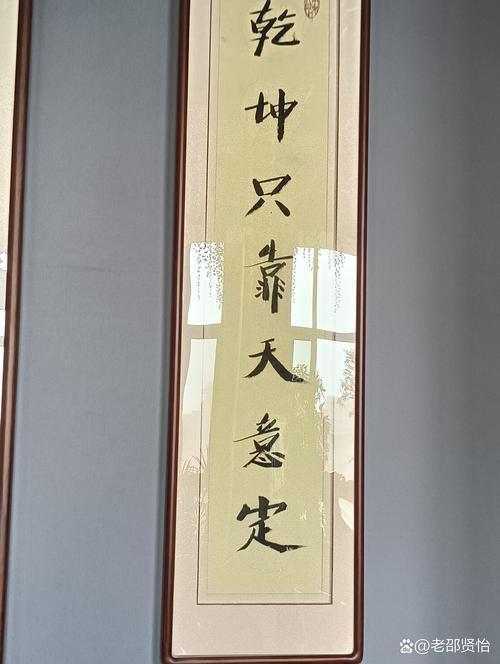 乾坤只靠天意定
@老邵贤怡